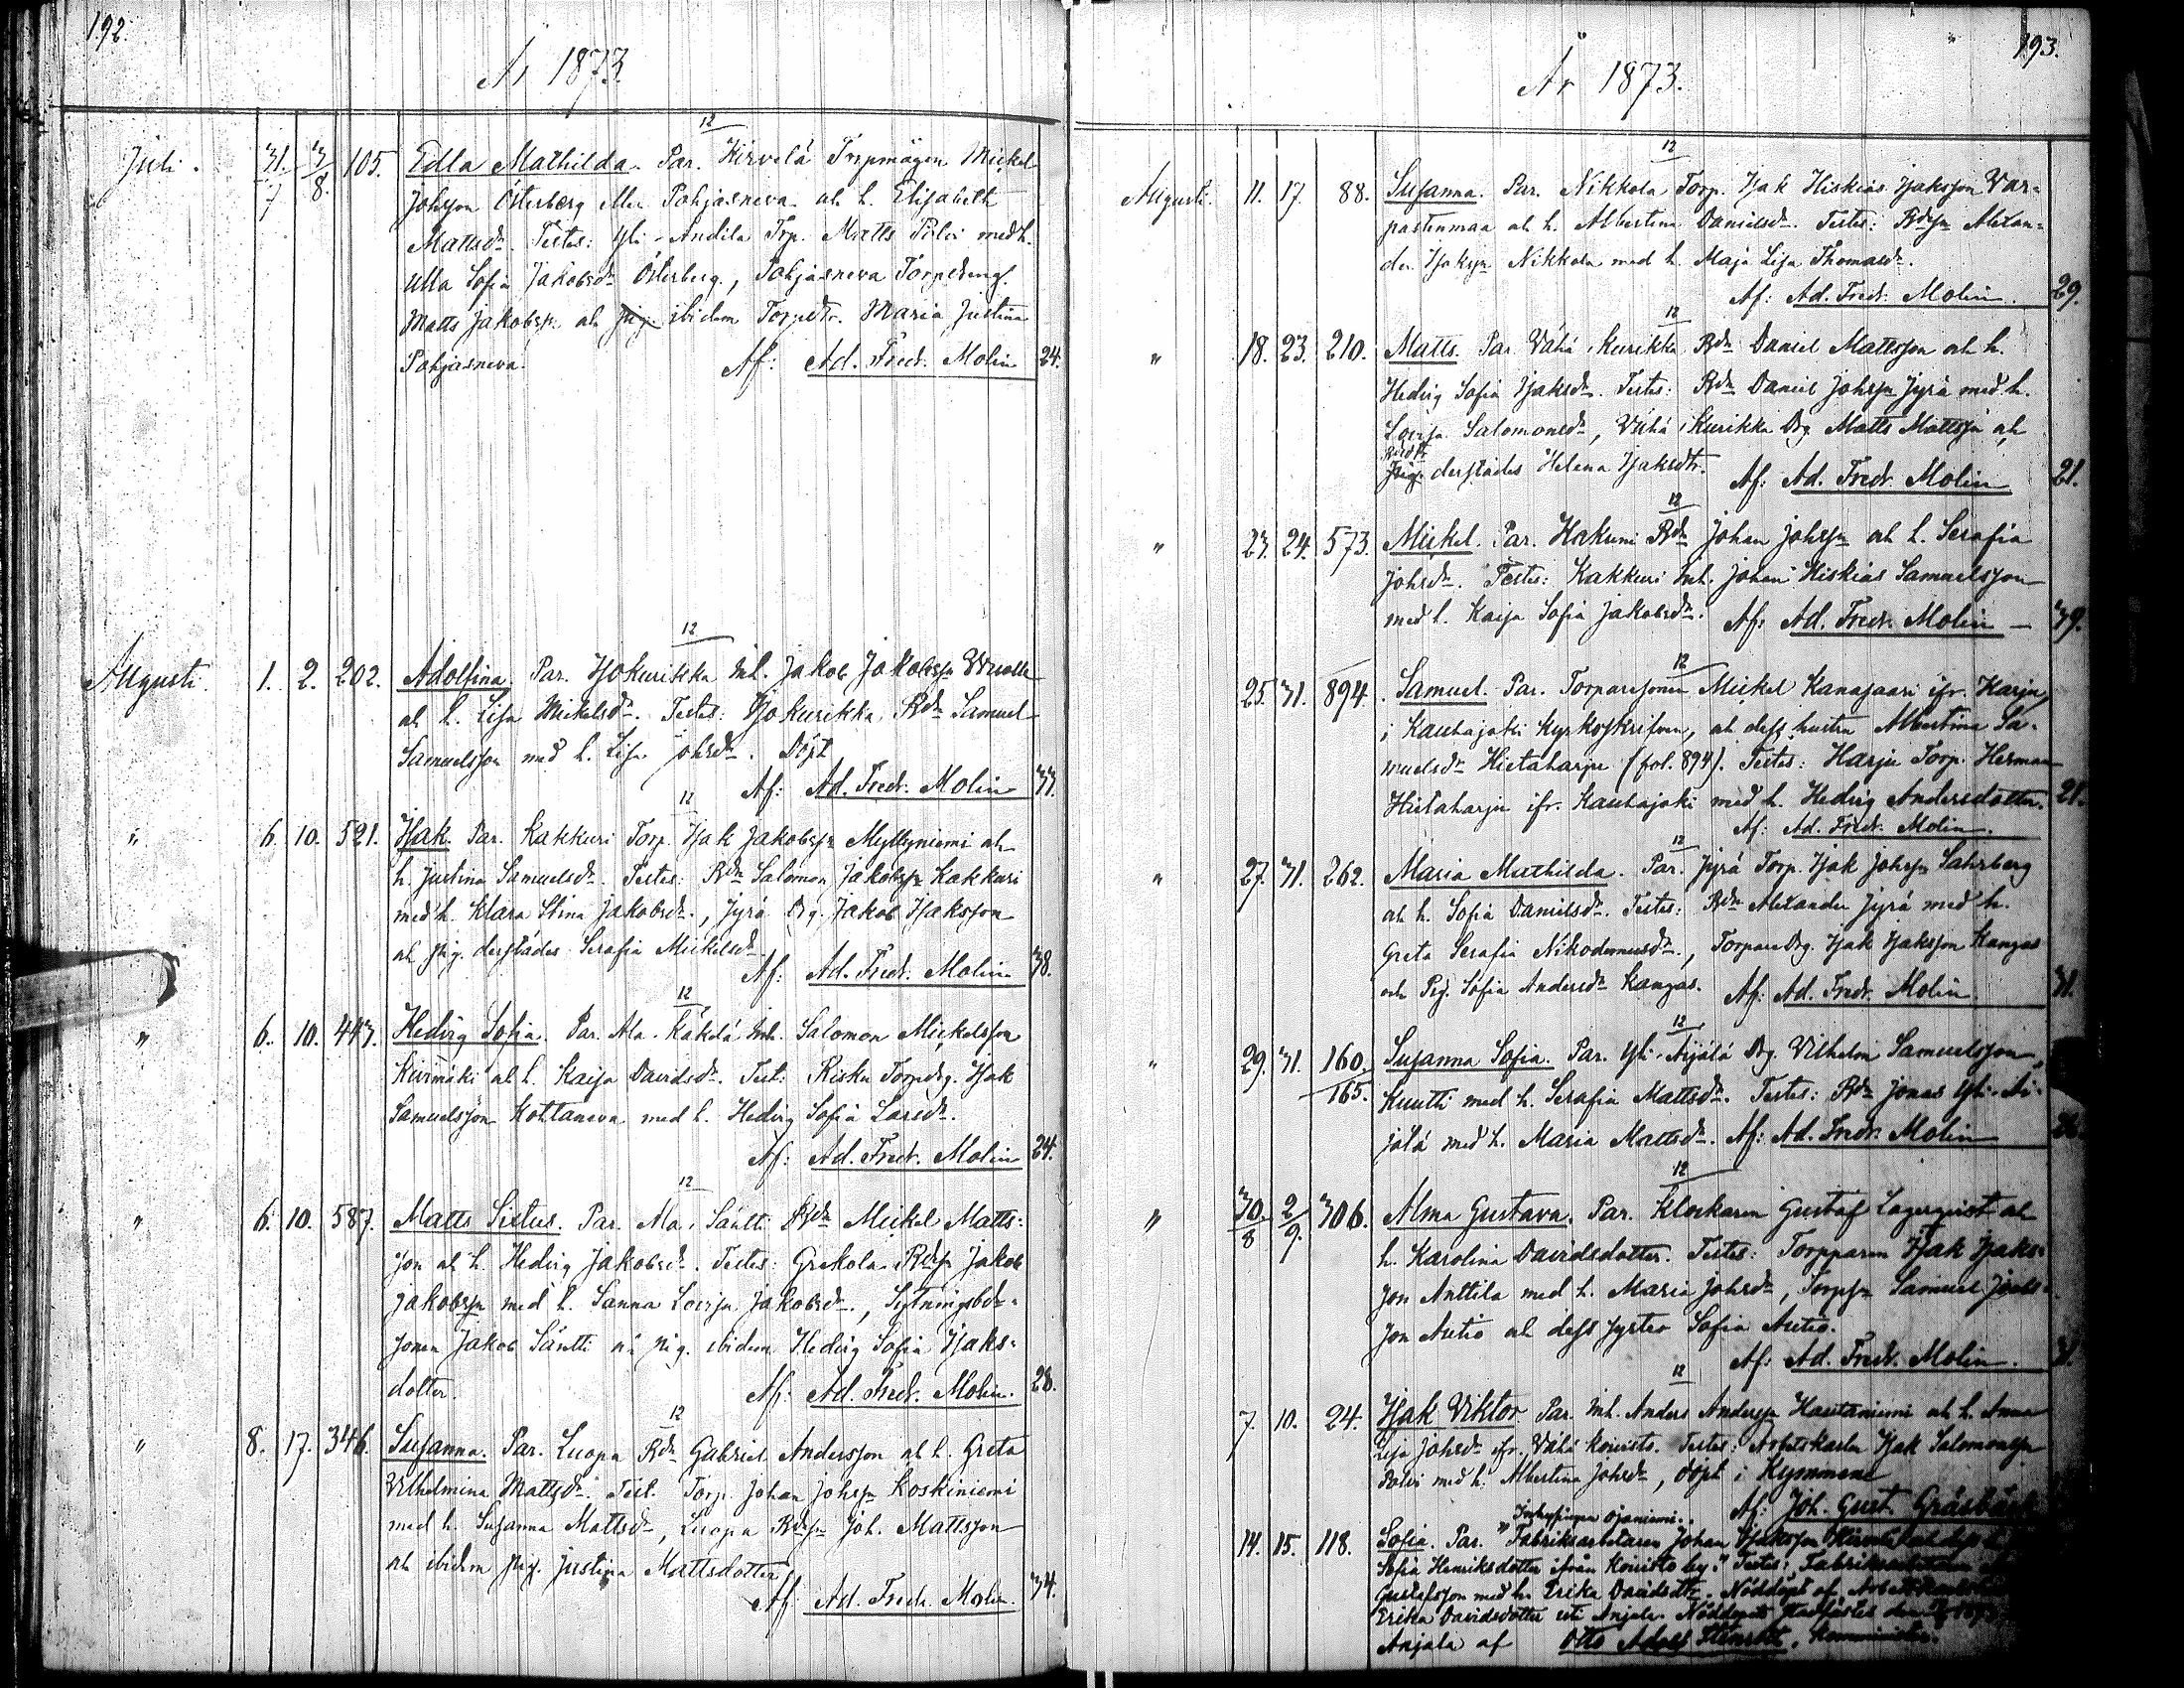 192.
År 1873.
12
Juli. 31/7 3/8. 105. Edla Mathilda. Par. Hirvelä Torpmågen Mickel
Johsson Österberg eller Pohjasneva och h. Elisabeth
Mattsdr. Testes: Yli-Andila Trp. Matts Polvi med h.
Ulla Sofia Jakobsdr Österberg, Pohjasneva Torpedreng
Matts Jakobsn och ibidem Torpedtr. Maria Justina
Pohjasneva. Af: Ad. Fredr. Molin 24.
12
Augusti. 1. 2. 202. Adolfina. Par. Isokurikka Inh. Jakob Jakobsn
och h. Lisa Mickelsdr. Testes: Isokurikka Rdn Samuel
Samuelsson med h. Lisa Johsdr. Döpt
Af: Ad. Fredr. Molin 33.
12
" 6. 10. 521. Isak. Par. Kakkuri Torp. Isak Jakobsn Myllyniemi och
h. Justina Samuelsdr. Testes: Rdn Salomon Jakobsn Kakkuri
med h. Klara Stina Jakobsdr., Jyrä Drg. Jakob Isaksson
och pig. derstädes Serafia Mickelsdr
Af: Ad. Fredr. Molin 38.
12
" 6. 10. 443. Hedvig Sofia. Par. Ala-Käkelä Inh. Salomon Mickelsson
Kurmäki och h. Kaisa Davidsdr. Test: Risku Torpdrg. Isak
Samuelsson Kohtaneva med h. Hedvig Sofia Larsdr.
Af: Ad. Fredr. Molin 24.
12
" 6. 10. 587. Matts Sixtus. Par. Ala-Säntti Rdn Mickel Matts-
son och h. Hedvig Jakobsdr. Testes: Grekola Rdsn Jakob
Jakobsn med h. Sanna Lovisa Jakobsdr.,
sonen Jakob Säntti och pig. ibidem Hedvig Sofia Isaks-
dotter. Af: Ad. Fredr. Molin. 28.
12
" 8. 17. 346. Susanna. Par. Luopa Rdn Gabriel Andersson och h. Greta
Vilhelmina Mattsdr. Test. Torp. Johan Johsn Koskiniemi
med h. Susanna Mattsdr, Luopa Rdsn Joh. Mattsson
och ibidem pig. Justina Mattsdotter
Af: Ad. Fredr. Molin. 34.
193.
År 1873.
12
Augusti. 11. 17. 88. Susanna. Par. Nikkola Torp. Isak Hiskias Isaksson Var-
pastenmaa och h. Albertina Danielsdr. Testes: Rdsn Alexan-
der Isaksn Nikkola med h. Maja Lisa Thomasdr.
Af: Ad. Fredr. Molin. 29.
12
" 18. 23. 210. Matts. Par. Vähä Kurikka Rdn Daniel Mattsson och h.
Hedvig Sofia Isaksdr. Testes: Rdn Daniel Johsn Jyrä med h.
Lovisa Salomonsdr, Vähä Kurikka Drg Matts Mattsn och
derstädes Helena Isaksdtr. Af: Ad. Fredr. Molin 21.
12
" 23. 24. 573. Mickel. Par. Hakuni Rdn Johan Johsn och h. Serafia
Johsdr. Testes: Kakkuri Inh. Johan Hiskias Samuelsson
med h. Kaisa Sofia Jakobsdr. Af: Ad. Fredr. Molin 39.
12
25. 31. 894. Samuel. Par. Torparesonen Mickel Kanasaari ifr. Harju
i Kauhajoki kyrkoskrifven, och dess hustru Albertina Sa-
muelsdr Hietaharju (fol. 894). Testes: Harju Torp. Herman
Hietaharju ifr. Kauhajoki med h. Hedvig Andersdotter. 21.
Af: Ad. Fredr. Molin.
12
" 27. 31. 262. Maria Mathilda. Par. Jyrä Torp. Isak Johsn Sahrberg
och h. Sofia Danielsdr. Testes: Rdn Alexander Jyrä med h.
Greta Serafia Nikodemusdr., Torpare Drg. Isak Isaksson Kangas
och Pig. Sofia Andersdr Kangas. Af: Ad. Fredr. Molin. 31.
12
" 29. 31. 160. Susanna Sofia. Par. Yli-Äijälä Drg. Vilhelm Samuelsson
165. Kuutti med h. Serafia Mattsdr. Testes: Rdn Jonas Yli-Äi-
jälä med h. Maria Mattsdr. Af: Ad. Fredr. Molin
12
" 30/8 2/9. 306. Alma Gustava. Par. Klockaren Gustaf Lagerqvist och
h. Karolina Davidsdotter. Testes: Torpparen Isak Isaks-
son Anttila med h. Maria Johsdr, Torpsn Samuel
son Autio och dess syster Sofia Autio.
Af: Ad. Fredr. Molin. 31.
12
7. 10. 24. Isak Viktor Par. Inh. Anders Andersn Hautaniemi och h. Anna
Lisa Johsdr ifr. Vähä Koivisto. Testes: Arbetskarlen Isak Salomonsn
Polvi med h. Albertina Johsdr, döpt i Kymmene
Af: Joh. Gust. Gråsbäck
Inhysingen Ojaniemi.
14. 15. 118. Sofia. Par. "Fabriksarbetaren Johan Isaksson och dess h.
Sofia Henriksdotter från Koivisto by." Testes: Fabriksarbetaren
Gustafsson med h. Erika Davidsdtr. Nöddöpt af
Erika Davidsdotter uti Anjala. Nöddopet stadfästes den
Anjala af Otto Adolf